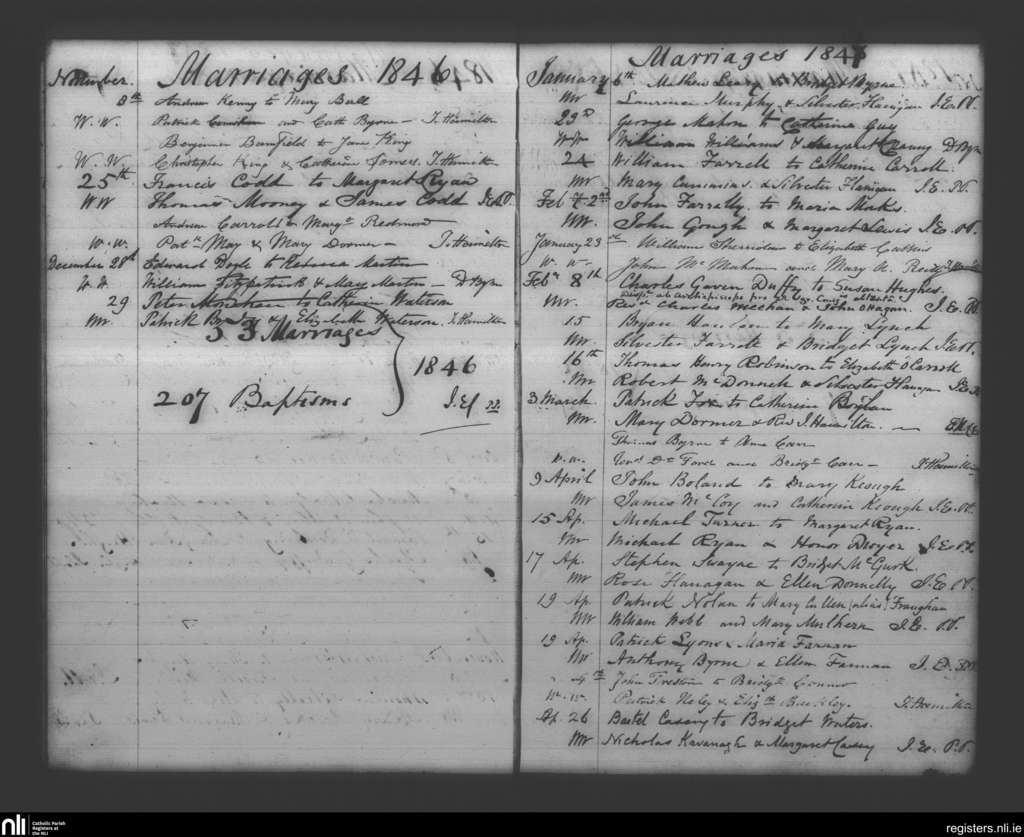 Marriages 1846
November.
8th Andrew Kenny to Mary Ball
W. W. Patrick and Cath Byrne - J. Hamilton
Benjamin Bamfield to Jane King
W. W. Christopher King & Catherine Somers. J. Hamilton
25th Francis Codd to Margaret Ryan
WW Thomas Mooney & James Codd
Andrew Carroll to Margt Redmond
W. W. May & Mary Dormer - J. Hamilton
December 28th Edward Doyle to Rebecca Martin
W. W. William Fitzpatrick & Mary Martin - D Byrne
29 Peter to Catherine Waterson
Mr. Patrick & Elizabeth Waterson. J. Hamilton
53 Marriages
1846
207 Baptisms
Marriages 1847
January 6th Mathew to Bridget Byrne
Mr Laurence Murphy & Silvester Flanigan J. E. P.
23d George Mahon to Catherine Guy
William Williams & Margaret D Byrne
24 William Farrell to Catherine Carroll.
Mr Mary & Silvester Flanigan J. E. P.
Feb 2nd John Farrelly to Maria
Mr. John Gough & Margaret Lewis J. E. P.
January 23rd William Sheridan to Elizabeth
W. W. John Mc Mahon and Mary A. Reilly
Feby 8th Charles Gavan Duffy to Susan Hughes.
Mr. Revd Charles Meehan & John O'Hagan. J. E. P.
15 Bryan Hanlon to Mary Lynch
Mr. Silvester Farrell & Bridget Lynch J. E. P.
16th Thomas Henry Robinson to Elizabeth O'Carroll
Mr Robert McDonnell & Silvester Flanagan J. E. P.
3 March Patrick Fox to Catherine Boylan
Mr. Mary Dormer & Revd J. Hamilton.
Thomas Byrne to Anne Carr
W. W. and Bridgt Carr - J. Hamilton
9 April John Boland to Mary Keough
Mr James McCoy and Catherine Keough J. E. P.
15 Ap. Michael Turner to Margaret Ryan.
Mr Michael Ryan & Honor Dwyer J. E. P.
17 Ap. Stephen Swayne to Bridget McGurk.
Mr Rose Flanagan & Ellen Donnelly J. E. P.
19 Ap. Patrick Nolan to Mary Cullen (alias) Fraughan
Mr William Webb and Mary Mulhern J. E. P.
19 Ap. Patrick Lyons & Maria Farnan
Mr Anthony Byrne & Ellen Farnan J. E. P.
4th John Preston to Bridgt Connor
W. W. Patrick & Elizth J. Hamilton
Ap. 26 Bartel Casey to Bridget Waters.
Mr Nicholas Kavanagh & Margaret Cassey J. E. P. P.
nli Catholic Parish
Registers at
the NLI
registers.nli.ie